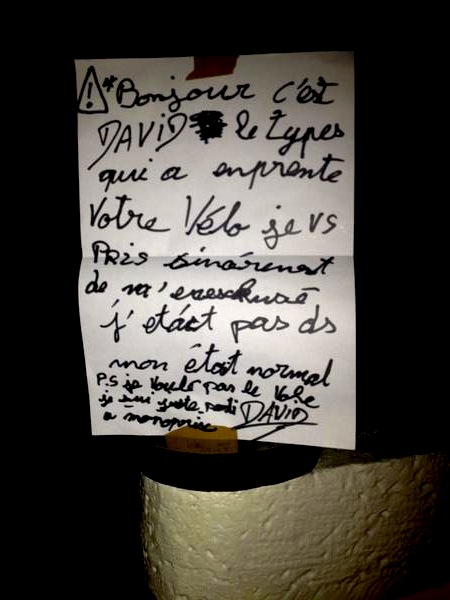 * Bonjour c'est
DAVID le types
qui a enprente
Votre Vélo je vs
Pris sincérement
de m'
j' etáct pas ds
mon état normal
P.S je Voulé pas le Volé
je sui juste parti DAVID
a monoprix